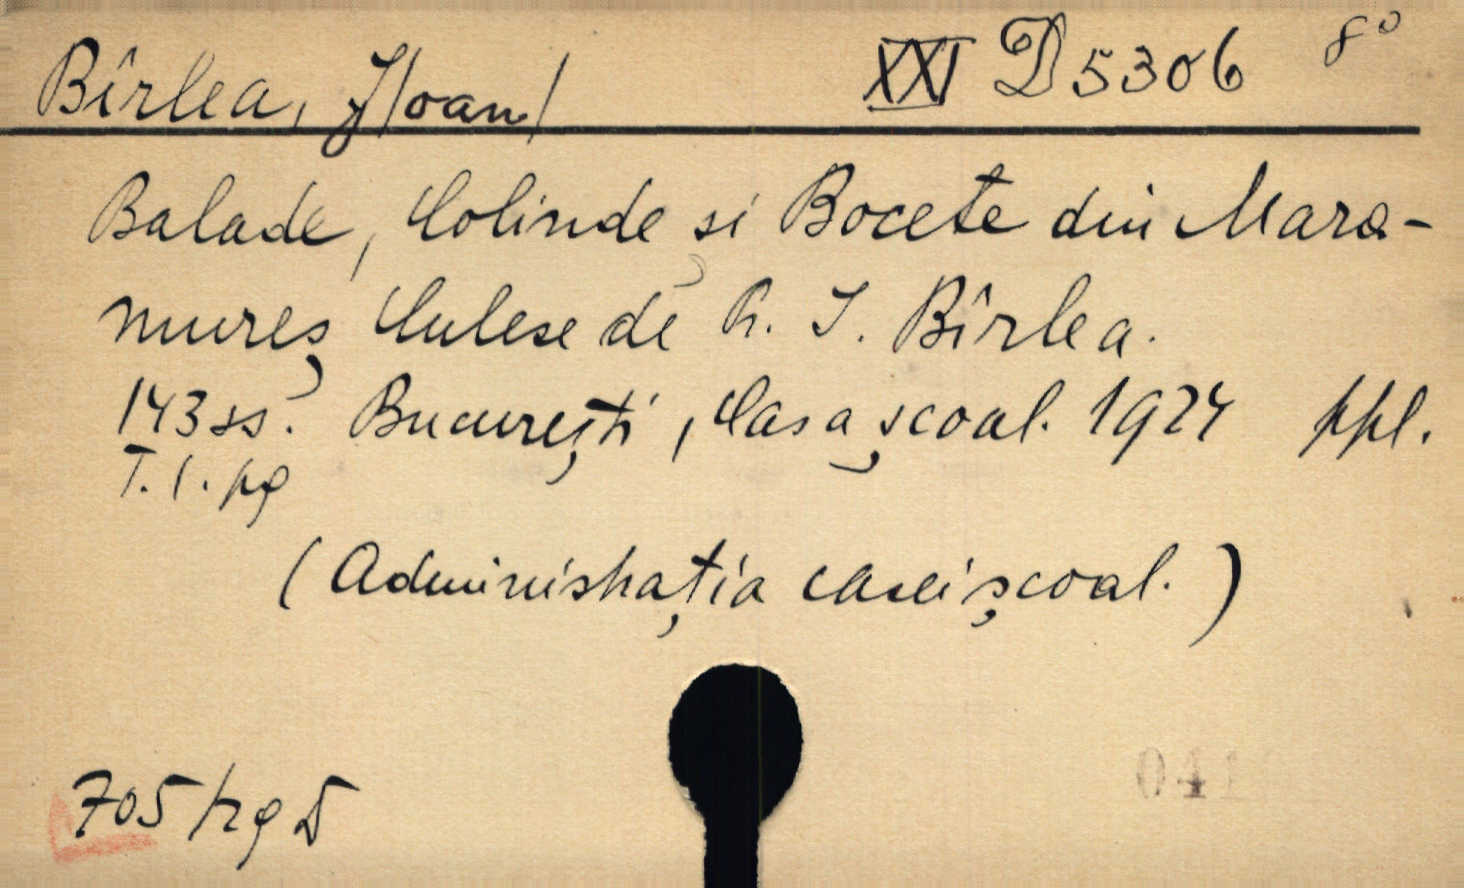 Bîrlea, I/oan/ XXI D 5306 8°
Balade, Colinde și Bocete din Mara-
mureș Culese de Pr. I. Bîrlea.
143 ss. București, Casa școal. 1924 ppl.
T. I. pg
(Administrația casei școal.)
705/
041